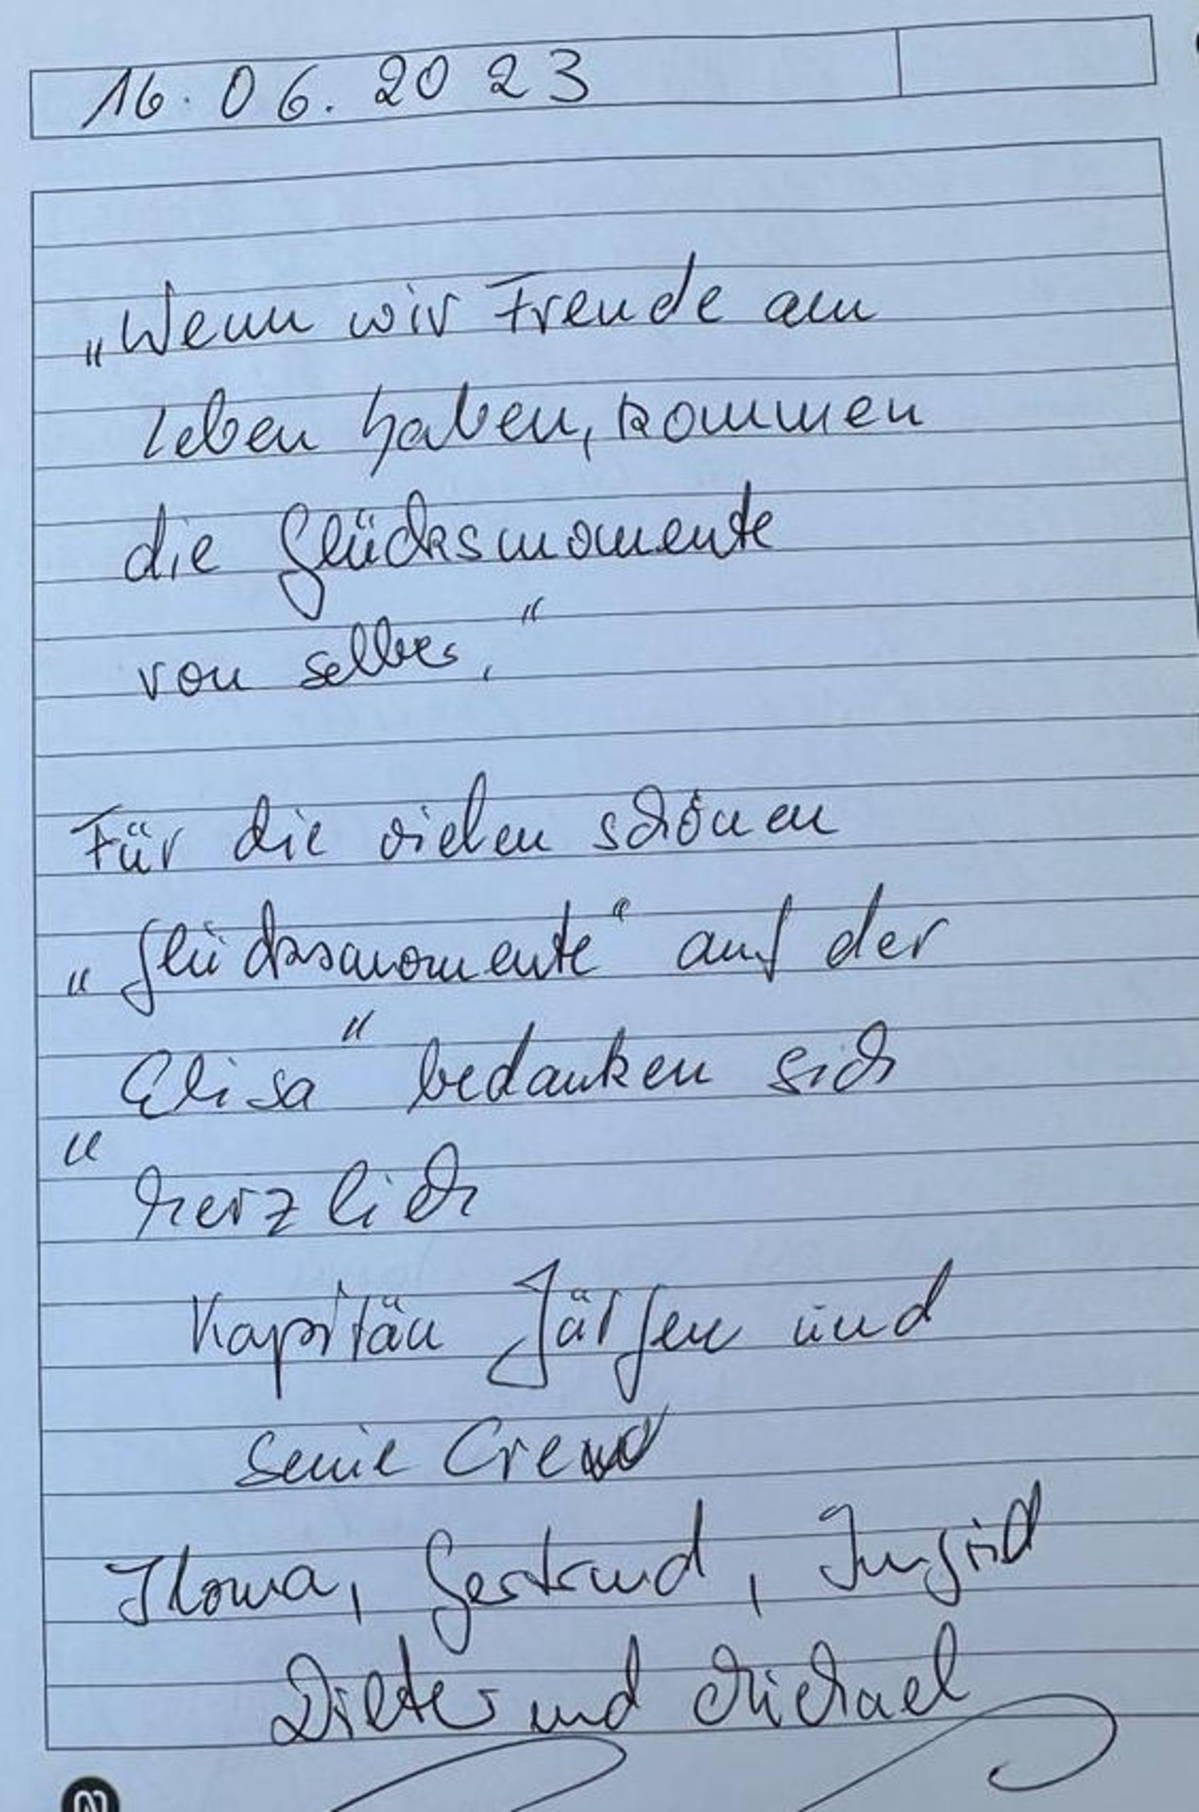 16.06.2023
„Wenn wir Freude am
Leben haben, kommen
die Glücksmomente
von selber.“
Für die vielen schönen
„Glücksmomente“ auf der
„Elisa“ bedanken sich
herzlich
Kapitän Jürgen und
seine Crew
Ilona, Gertrud, Ingrid
Dieter und Michael